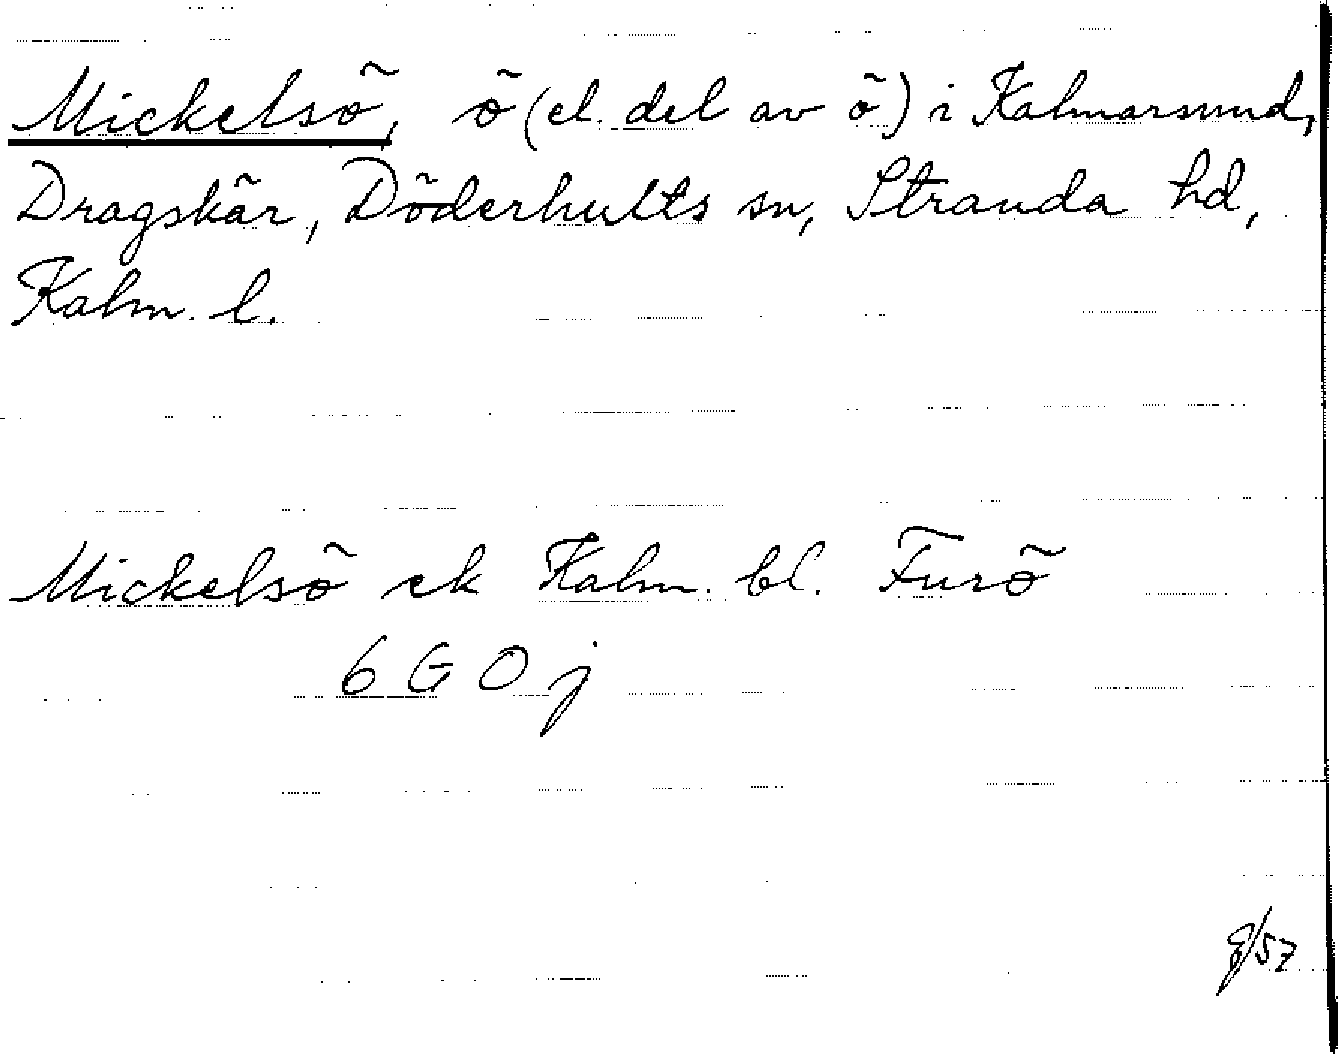 Mickelsö, ö (el. del av ö) i Kalmarsund,
Dragskär, Döderhults sn, Stranda hd,
Kalm. l.
Mickelsö ek Kalm. bl. Furö
6 G O j
8/57